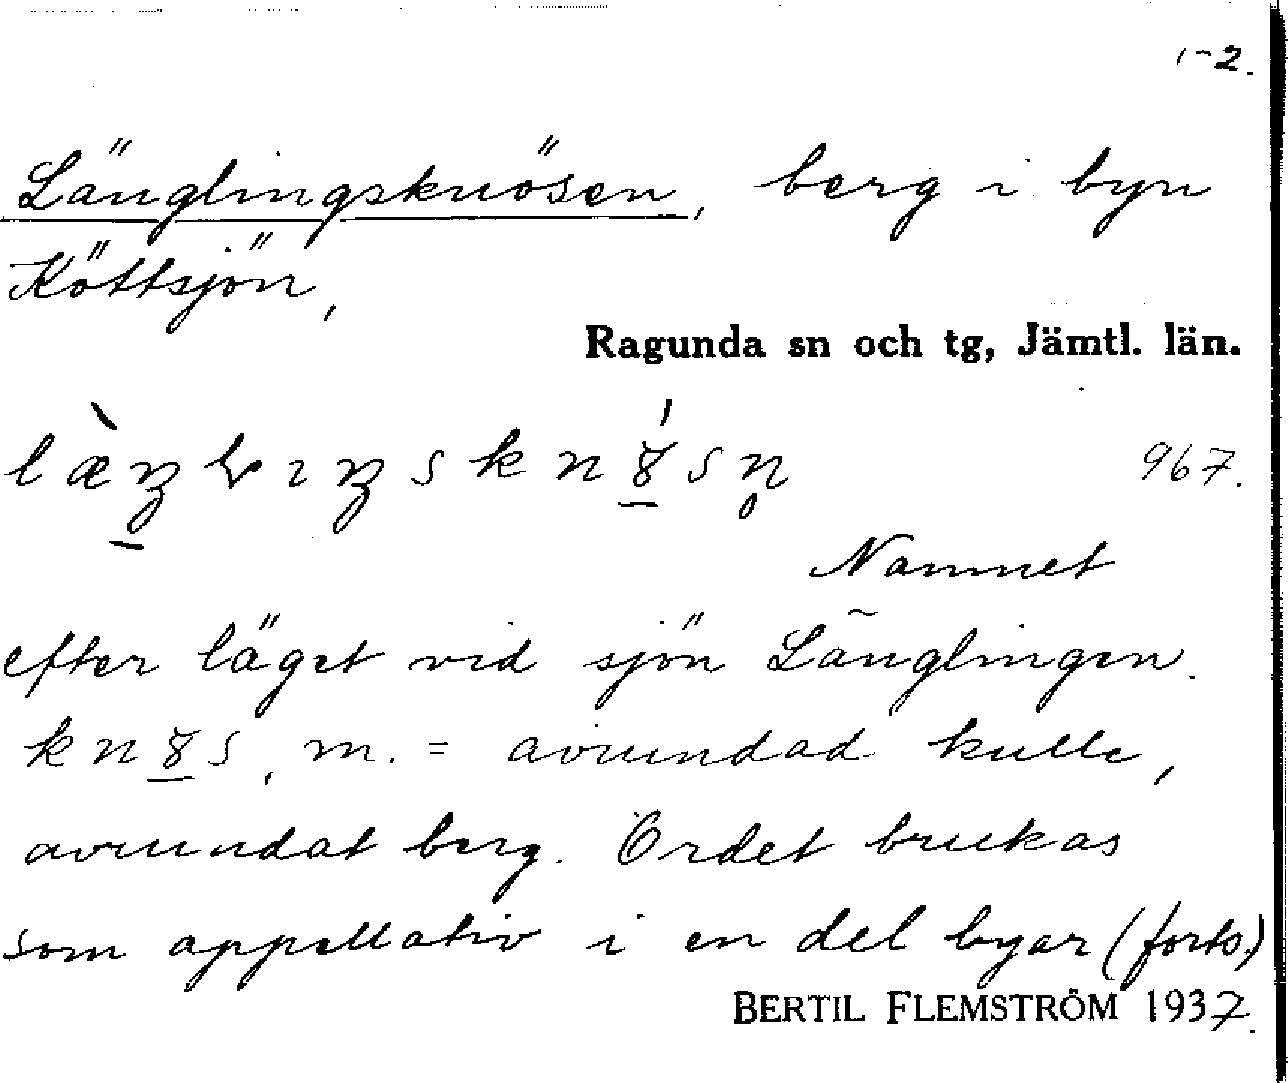 1-2.
Länglingsknösen, berg i byn
Köttsjön,
Ragunda sn och tg, Jämtl. län.
967.
Namnet
efter läget vid sjön Länglingen.
m. = avrundad kulle,
avrundat berg. Ordet brukas
som appellativ i en del byar (forts.)
BERTIL FLEMSTRÖM 1937.